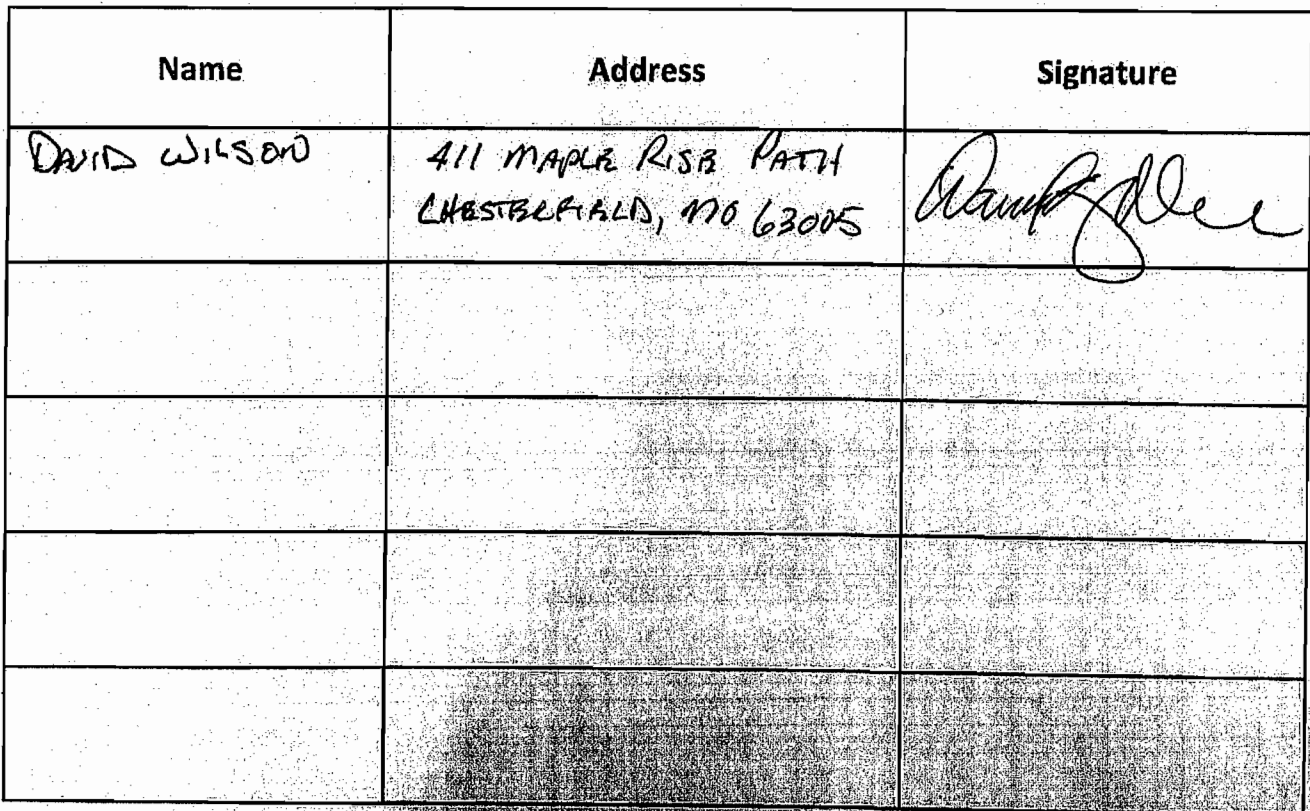 Name Address Signature
DAVID WILSON 411 MAPLE RISE PATH
CHESTERFIELD, MO 63005